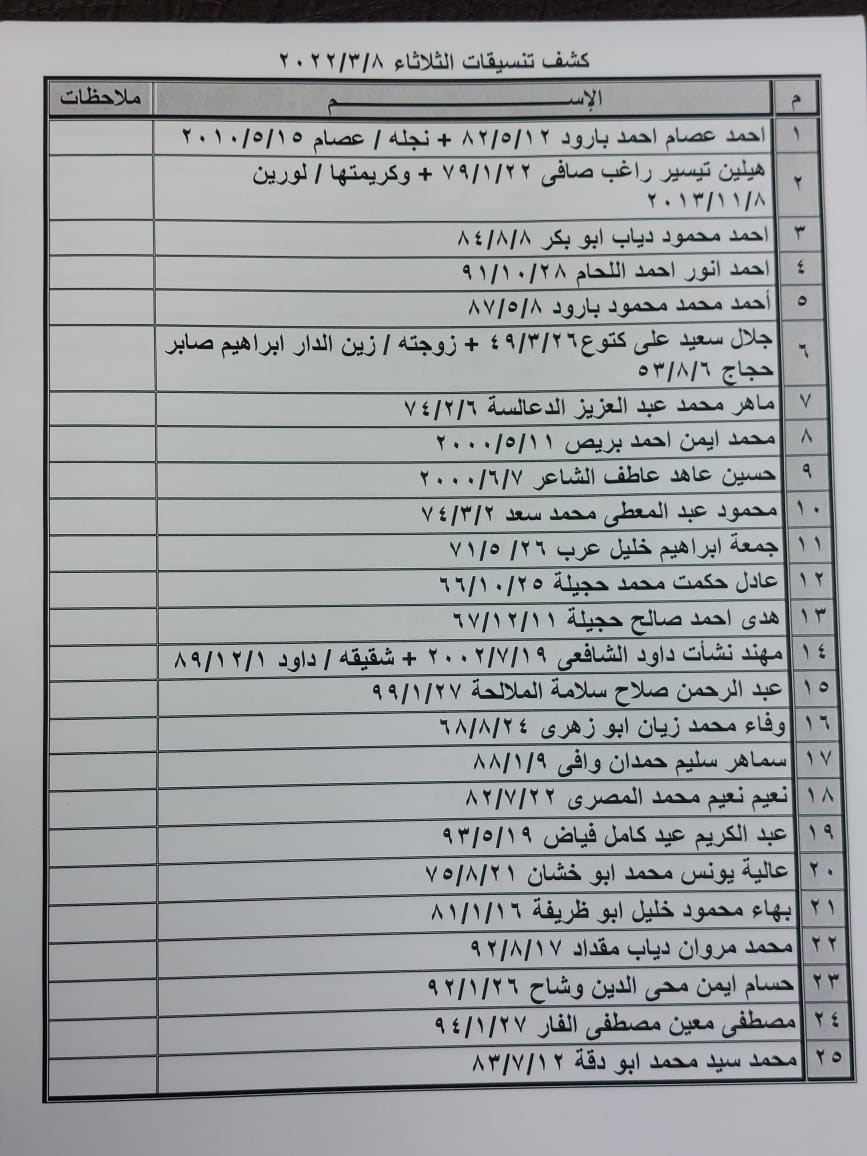 كشف تنسيقات الثلاثاء ٢٠٢٢/٣/٨
م الإســـــــــــم ملاحظات
١ احمد عصام احمد بارود ٨٢/٥/١٢ + نجله / عصام ٢٠١٠/٥/١٥
٢ هيلين تيسير راغب صافى ٧٩/١/٢٢ + وكريمتها / لورين
٢٠١٣/١١/٨
٣ احمد محمود دياب ابو بكر ٨٤/٨/٨
٤ احمد انور احمد اللحام ٩١/١٠/٢٨
٥ أحمد محمد محمود بارود ٨٧/٥/٨
٦ جلال سعيد على كتوع ٤٩/٣/٢٦ + زوجته / زين الدار ابراهيم صابر
حجاج ٥٣/٨/٦
٧ ماهر محمد عبد العزيز الدعالسة ٧٤/٢/٦
٨ محمد ايمن احمد بريص ٢٠٠٠/٥/١١
٩ حسين عاهد عاطف الشاعر ٢٠٠٠/٦/٧
١٠ محمود عبد المعطى محمد سعد ٧٤/٣/٢
١١ جمعة ابراهيم خليل عرب ٧١/٥/٢٦
١٢ عادل حكمت محمد حجيلة ٦٦/١٠/٢٥
١٣ هدى احمد صالح حجيلة ٦٧/١٢/١١
١٤ مهند نشأت داود الشافعى ٢٠٠٢/٧/١٩ + شقيقه / داود ٨٩/١٢/١
١٥ عبد الرحمن صلاح سلامة الملالحة ٩٩/١/٢٧
١٦ وفاء محمد زيان ابو زهرى ٦٨/٨/٢٤
١٧ سماهر سليم حمدان وافى ٨٨/١/٩
١٨ نعيم نعيم محمد المصرى ٨٢/٧/٢٢
١٩ عبد الكريم عيد كامل فياض ٩٣/٥/١٩
٢٠ عالية يونس محمد ابو خشان ٧٥/٨/٢١
٢١ بهاء محمود خليل ابو ظريفة ٨١/١/١٦
٢٢ محمد مروان دياب مقداد ٩٢/٨/١٧
٢٣ حسام ايمن محى الدين وشاح ٩٢/١/٢٦
٢٤ مصطفى معين مصطفى الفار ٩٤/١/٢٧
٢٥ محمد سيد محمد ابو دقة ٨٣/٧/١٢